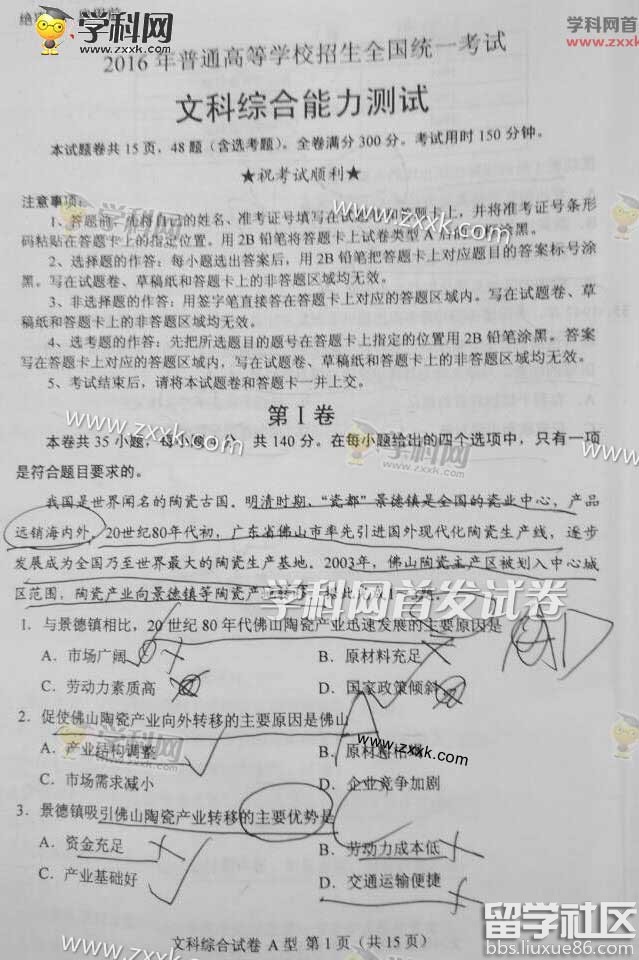 绝
学科网
www.zxxk.com
学科网
www.zxxk.com
2016年普通高等学校招生全国统一考试
文科综合能力测试
本试题卷共15页，48题（含选考题）。全卷满分300分。考试用时150分钟。
★祝考试顺利★
注意事项：
1、答题前，先将自己的姓名、准考证号填写在试题卷和答题卡上，并将准考证号条形
码粘贴在答题卡上的指定位置。用2B铅笔将答题卡上试卷类型A后的方框涂黑。
2、选择题的作答：每小题选出答案后，用2B铅笔把答题卡上对应题目的答案标号涂
黑。写在试题卷、草稿纸和答题卡上的非答题区域均无效。
3、非选择题的作答：用签字笔直接答在答题卡上对应的答题区域内。写在试题卷、草
稿纸和答题卡上的非答题区域均无效。
4、选考题的作答：先把所选题目的题号在答题卡上指定的位置用2B铅笔涂黑。答案
写在答题卡上对应的答题区域内，写在试题卷、草稿纸和答题卡上的非答题区域均无效。
5、考试结束后，请将本试题卷和答题卡一并上交。
第Ⅰ卷
本卷共35小题，每小题 分，共140分。在每小题给出的四个选项中，只有一项
是符合题目要求的。
我国是世界闻名的陶瓷古国。明清时期，“瓷都”景德镇是全国的瓷业中心，产品
远销海内外。20世纪80年代初，广东省佛山市率先引进国外现代化陶瓷生产线，逐步
发展成为全国乃至世界最大的陶瓷生产基地。2003年，佛山陶瓷主产区被划入中心城
区范围，陶瓷产业向景德镇等陶瓷产业转移。据此完成1～3题。
学科网首发试卷
1．与景德镇相比，20世纪80年代佛山陶瓷产业迅速发展的主要原因是
A．市场广阔 B．原材料充足
C．劳动力素质高 D．国家政策倾斜
2．促使佛山陶瓷产业向外转移的主要原因是佛山
A．产业结构调整 B．原材料枯
C．市场需求减小 D．企业竞争加剧
3．景德镇吸引佛山陶瓷产业转移的主要优势是
A．资金充足 B．劳动力成本低
C．产业基础好 D．交通运输便捷
文科综合试卷 A型 第1页（共15页）
www.zxxk.com
留学社区
bbs.liuxue86.com